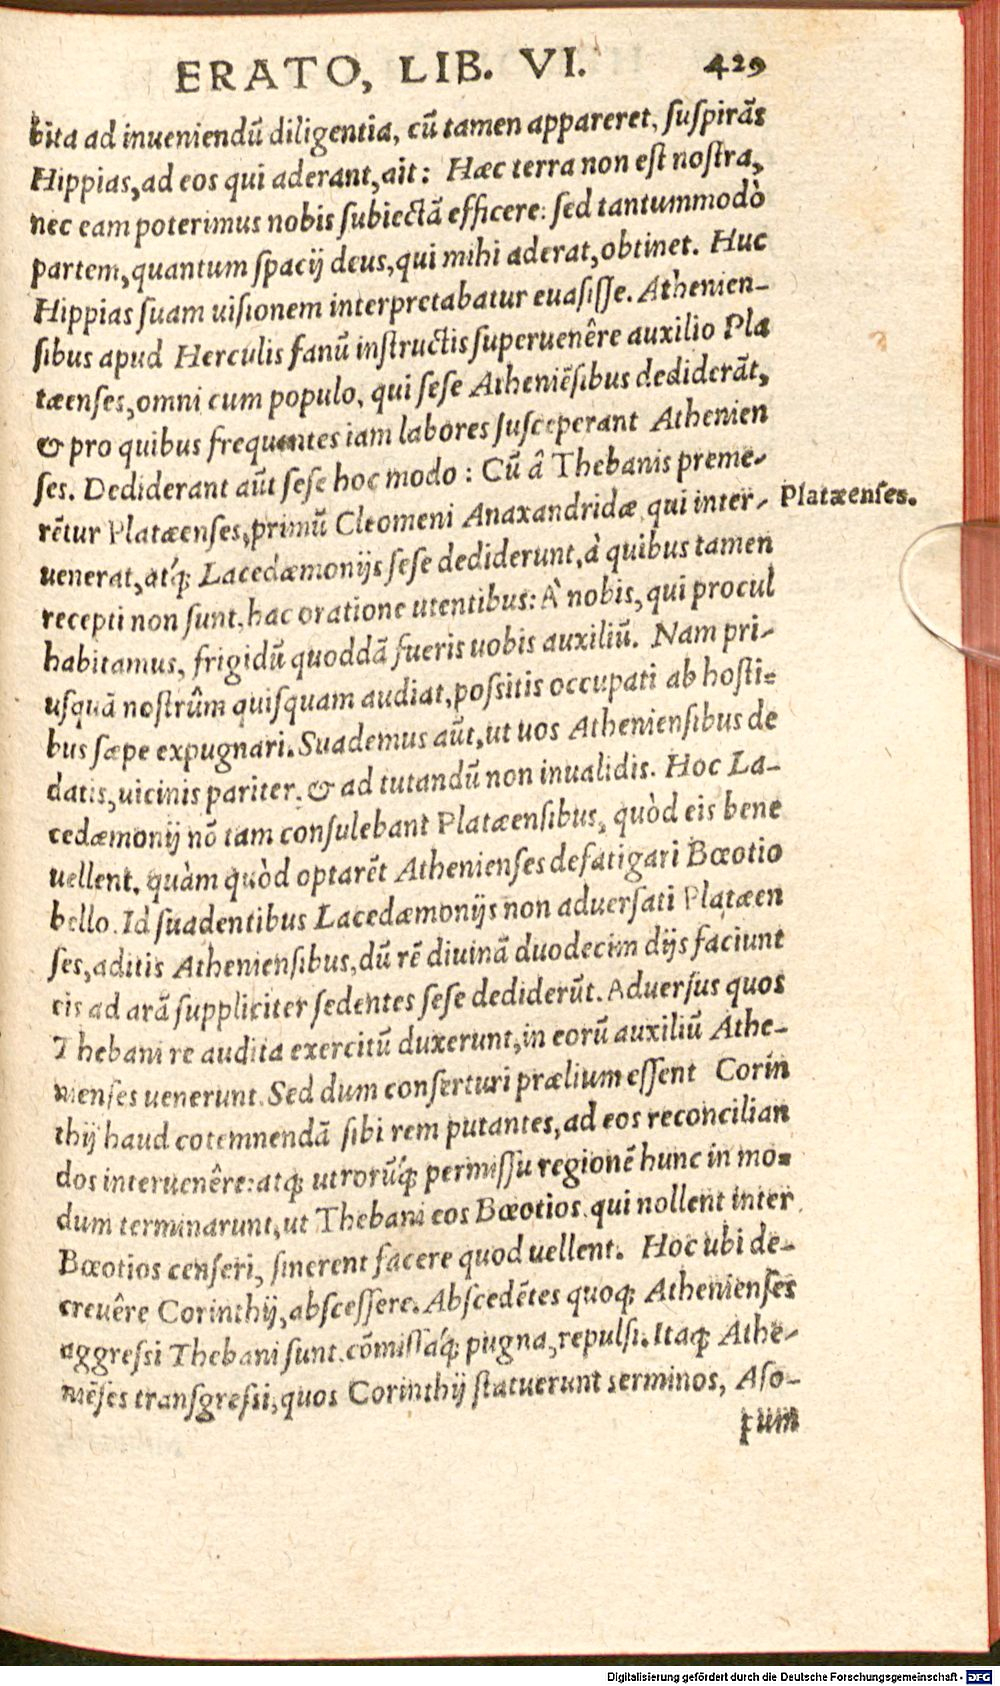 ERATO, LIB. VI. 429
bita ad inueniendũ diligentia, cũ tamen appareret, ſuſpirãs
Hippias, ad eos qui aderant, ait: Hæc terra non eſt noſtra,
nec eam poterimus nobis ſubiectã efficere: ſed tantummodò
partem, quantum ſpacij deus, qui mihi aderat, obtinet. Huc
Hippias ſuam uiſionem interpretabatur euaſiſſe. Athenien-
ſibus apud Herculis fanũ inſtructis ſuperuenêre auxilio Pla
tæenſes, omni cum populo, qui ſeſe Atheniẽſibus dediderãt,
& pro quibus frequentes iam labores ſuſceperant Athenien
ſes. Dediderant aũt ſeſe hoc modo: Cũ â Thebanis preme-
rẽtur Platæenſes, primũ Cleomeni Anaxandridæ qui inter-
Platæenſes.
uenerat, atq́; Lacedæmonijs ſeſe dediderunt, à quibus tamen
recepti non ſunt, hac oratione utentibus: À nobis, qui procul
habitamus, frigidũ quoddã fueris uobis auxiliũ. Nam pri-
uſquã noſtrûm quiſquam audiat, poſsitis occupati ab hoſti-
bus ſæpe expugnari. Suademus aũt, ut uos Athenienſibus de
datis, uicinis pariter, & ad tutandũ non inualidis. Hoc La-
cedæmonij nõ tam conſulebant Platæenſibus, quòd eis bene
uellent, quàm quòd optarẽt Athenienſes defatigari Bœotio
bello. Id ſuadentibus Lacedæmonijs non aduerſati Platæen
ſes, aditis Athenienſibus, dũ rẽ diuinã duodecim dijs faciunt
eis ad arã ſuppliciter ſedentes ſeſe dediderũt. Aduerſus quos
Thebani re audita exercitũ duxerunt, in eorũ auxiliũ Athe-
nienſes uenerunt. Sed dum conſerturi prælium eſſent Corin
thij haud cotemnendã ſibi rem putantes, ad eos reconcilian
dos interuenêre: atq; utrorũq́; permiſſu regionẽ hunc in mo-
dum terminarunt, ut Thebani eos Bœotios, qui nollent inter
Bœotios cenſeri, ſinerent facere quod uellent. Hoc ubi de-
creuêre Corinthij, abſceſſere. Abſcedẽtes quoq; Athenienſes
aggreſsi Thebani ſunt, cõmiſſaq́; pugna, repulſi. Itaq; Athe-
niẽſes tranſgreſsi, quos Corinthij ſtatuerunt terminos, Aſo-
pum
Digitalisierung gefördert durch die Deutsche Forschungsgemeinschaft - DFG